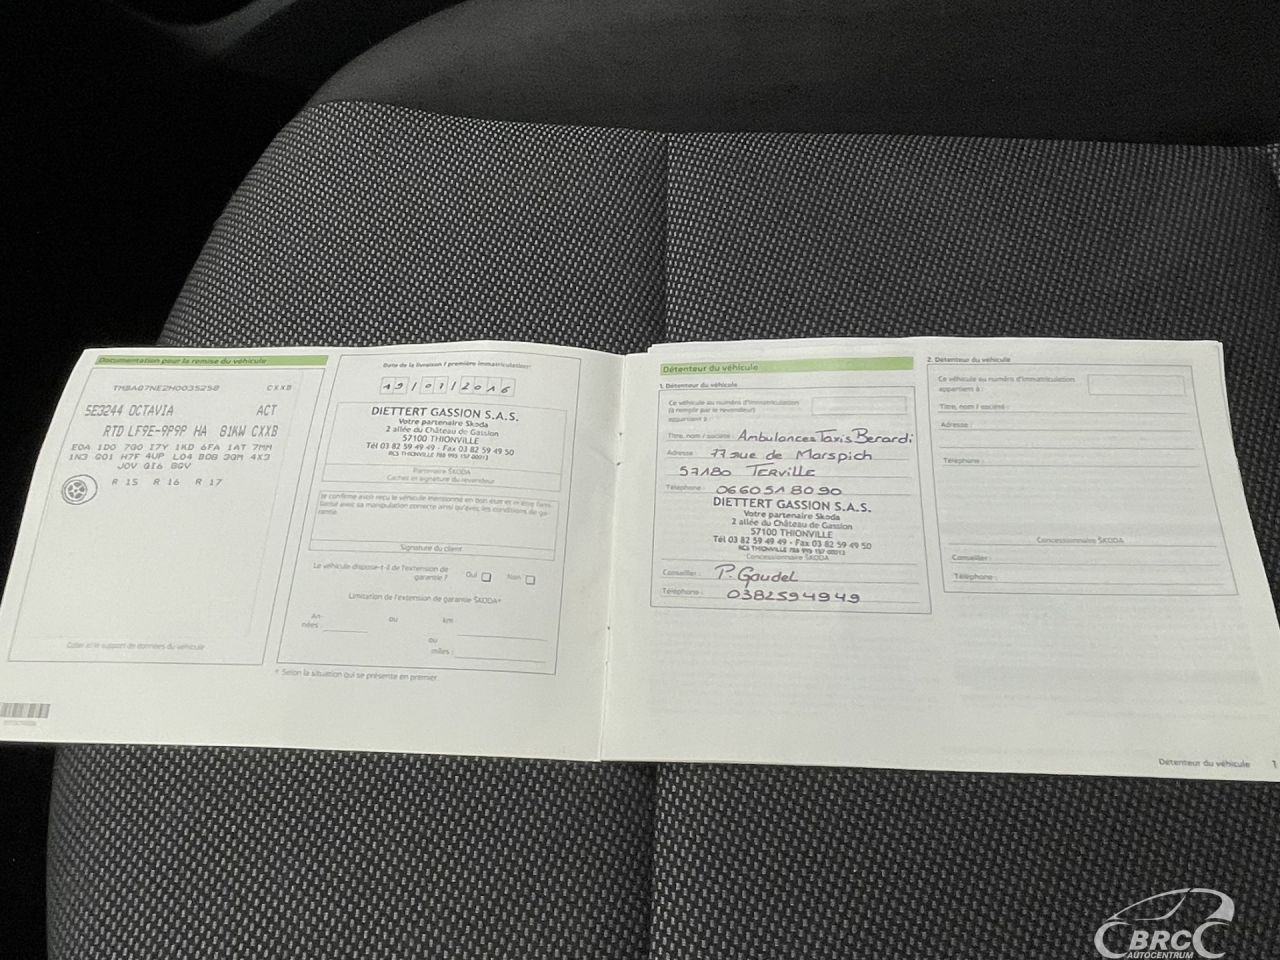 Documentation pour la remise du véhicule
TMBAG7NE2H0035258 CXXB
5E3244 OCTAVIA ACT
RTD LF9E-9P9P HA 81KW CXXB
E0A 1D0 7G0 I7Y 1KD 6FA 1AT 7MM
1N3 G01 H7F 4UP L04 B0B 3GM 4X3
J0V QI6 8GV
R 15 R 16 R 17
Coller ici le support de données du véhicule
Date de la livraison / première immatriculation*
19/07/2016
DIETTERT GASSION S.A.S.
Votre partenaire Skoda
2 allée du Château de Gassion
57100 THIONVILLE
Tél 03 82 59 49 49 - Fax 03 82 59 49 50
RCS THIONVILLE 788 993 157 00013
Partenaire ŠKODA
Cachets et signature du revendeur
Je confirme avoir reçu le véhicule mentionné en bon état et m'être fami-
liarisé avec sa manipulation correcte ainsi qu'avec les conditions de ga-
rantie.
Signature du client
Le véhicule dispose-t-il de l'extension de
garantie ? Oui Non
Limitation de l'extension de garantie ŠKODA*
An-
nées : ou km :
ou
miles :
* Selon la situation qui se présente en premier
Détenteur du véhicule
1. Détenteur du véhicule
Ce véhicule au numéro d'immatriculation
(à remplir par le revendeur)
appartient à :
Titre, nom / société : Ambulances Taxis Berardi
Adresse : 77 rue de Marspich
57180 TERVILLE
Téléphone : 0660518090
DIETTERT GASSION S.A.S.
Votre partenaire Skoda
2 allée du Château de Gassion
57100 THIONVILLE
Tél 03 82 59 49 49 - Fax 03 82 59 49 50
RCS THIONVILLE 788 993 157 00013
Concessionnaire ŠKODA
Conseiller : P. Gaudel
Téléphone : 0382594949
2. Détenteur du véhicule
Ce véhicule au numéro d'immatriculation
appartient à :
Titre, nom / société :
Adresse :
Téléphone :
Concessionnaire ŠKODA
Conseiller :
Téléphone :
Détenteur du véhicule 1
BRC
AUTOCENTRUM